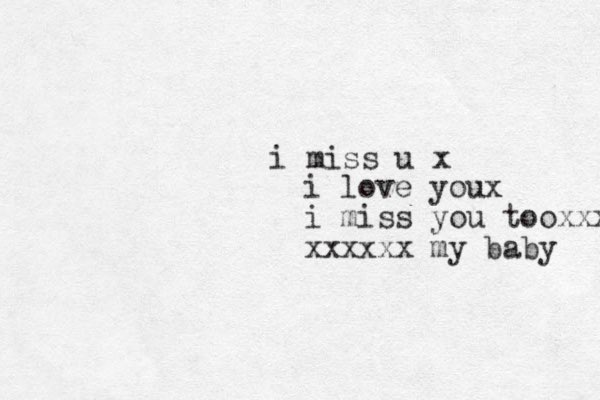 i miss u x
i love youx
i miss you tooxxx
xxxxxx my baby